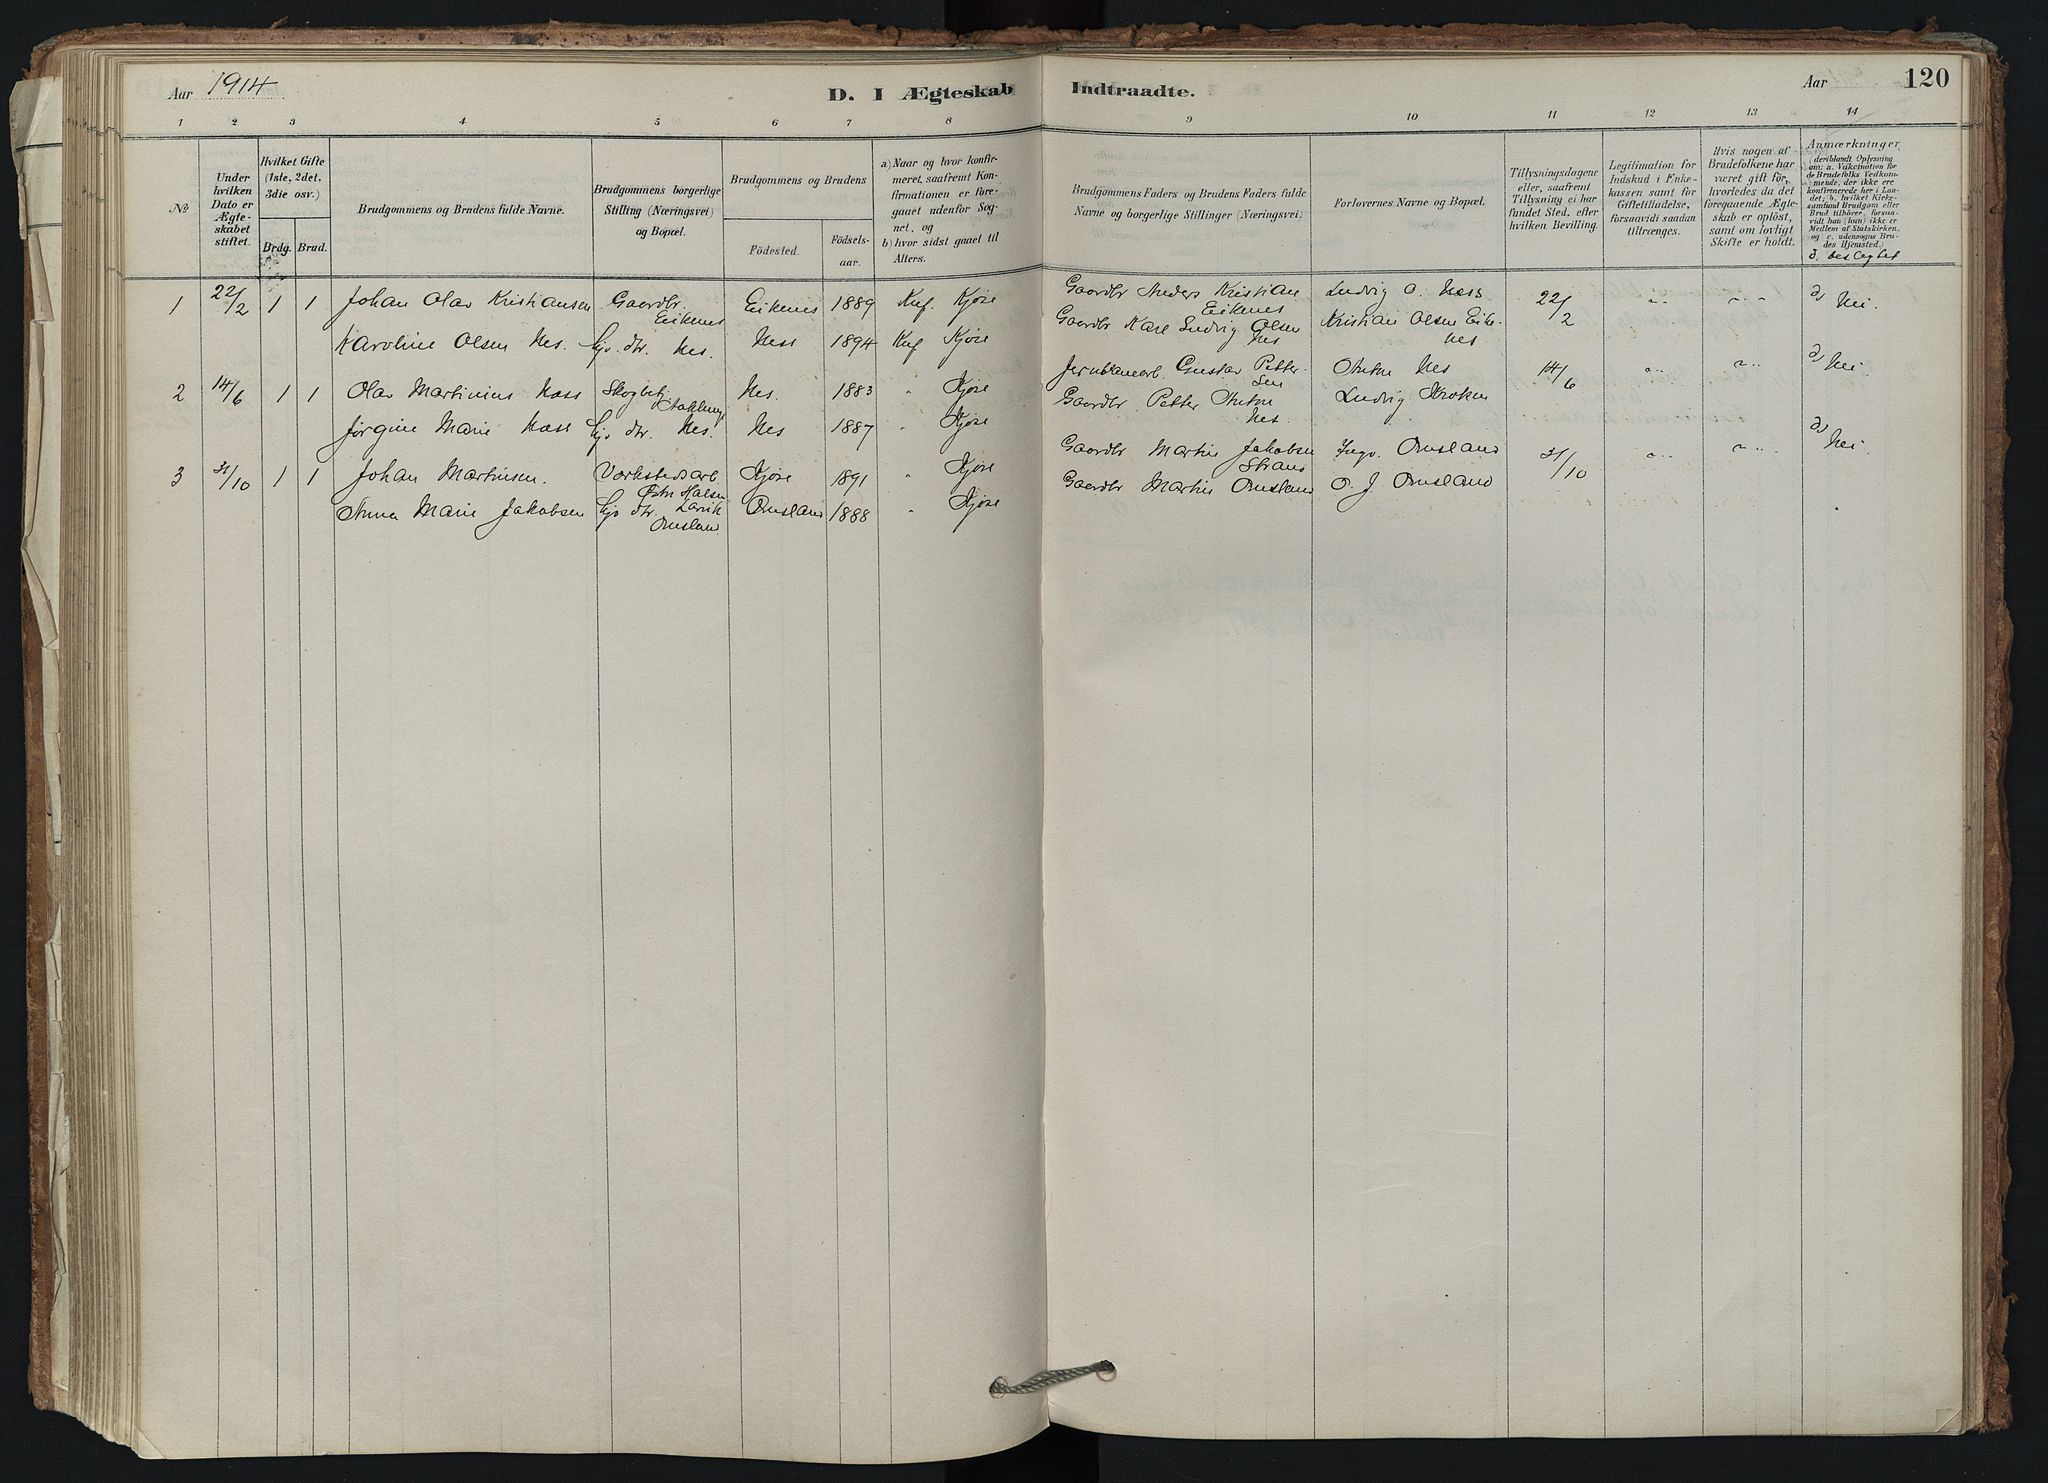 Aar 1914
D. I Ægteskab
Indtraadte.
Aar
120
1 2 3 4 5 6 7 8 9 10 11 12 13 14
№
Under hvilken Dato er Ægteskabet stiftet.
Hvilket Gifte (1ste, 2det, 3die osv.)
Brdg. Brud.
Brudgommens og Brudens fulde Navne.
Brudgommens borgerlige Stilling (Næringsvei) og Bopæl.
Brudgommens og Brudens
Födested.
Födselsaar.
a) Naar og hvor konfirmeret, saafremt Konfirmationen er foregaaet udenfor Sognet, og
b) hvor sidst gaaet til Alters.
Brudgommens Faders og Brudens Faders fulde Navne og borgerlige Stillinger (Næringsvei)
Forlovernes Navne og Bopæl.
Tillysningsdagene eller, saafremt Tillysning ei har fundet Sted, efter hvilken Bevilling.
Legitimation for Indskud i Enkekassen samt for Giftetilladelse, forsaavidt saadan tiltrænges.
Hvis nogen af Brudefolkene har været gift för, hvorledes da det foregaaende Ægteskab er oplöst, samt om lovligt Skifte er holdt.
Anmærkninger
(deriblandt Oplysning om: a. Vakcination for de Brudefolks Vedkommende, der ikke ere konfirmerede her i Landet; b. hvilket Kirkesamfund Brudgom eller Brud tilhörer, forsaavidt han (hun) ikke er Medlem af Statskirken, og c. udensogns Brudes Hjemsted.)
d. beslegtet
1 22/2 1 1 Johan Olav Kristiansen Gaardbr. Eikenes Eikenes 1889 Knf. Kjøse Gaardbr Anders Kristian Eikenes Ludvig O. Næss 22/2 " " d) Nei.
Karoline Olsen Nes. Gjv. dtr. Nes. Ness 1894 Knf Kjøse Gaardbr Karl Ludvig Olsen Nes Kristian Olsen Eikenes
2 14/6 1 1 Olav Martinius Næss Nes. 1883 " Kjøse Jernbanearb. Gustav Pettersen Anton Nes 14/6 " " d) Nei.
Jørgine Marie Næss Gjv dtr. Nes. Nes 1887 " Kjøse Gaardbr Petter Anton Nes. Ludvig Kroken
3 31/10 1 1 Johan Martinsen. Værkstedsarb. Østre Halsen Larvik Kjøse 1891 " Kjøse Gaardbr Martin Jakobsen Strand Ingv. Omsland 31/10 " " d) Nei.
Anna Marie Jakobsen Gjv dtr. Omsland Omsland 1888 " Kjøse Gaardbr Martin Omsland O. J. Omsland